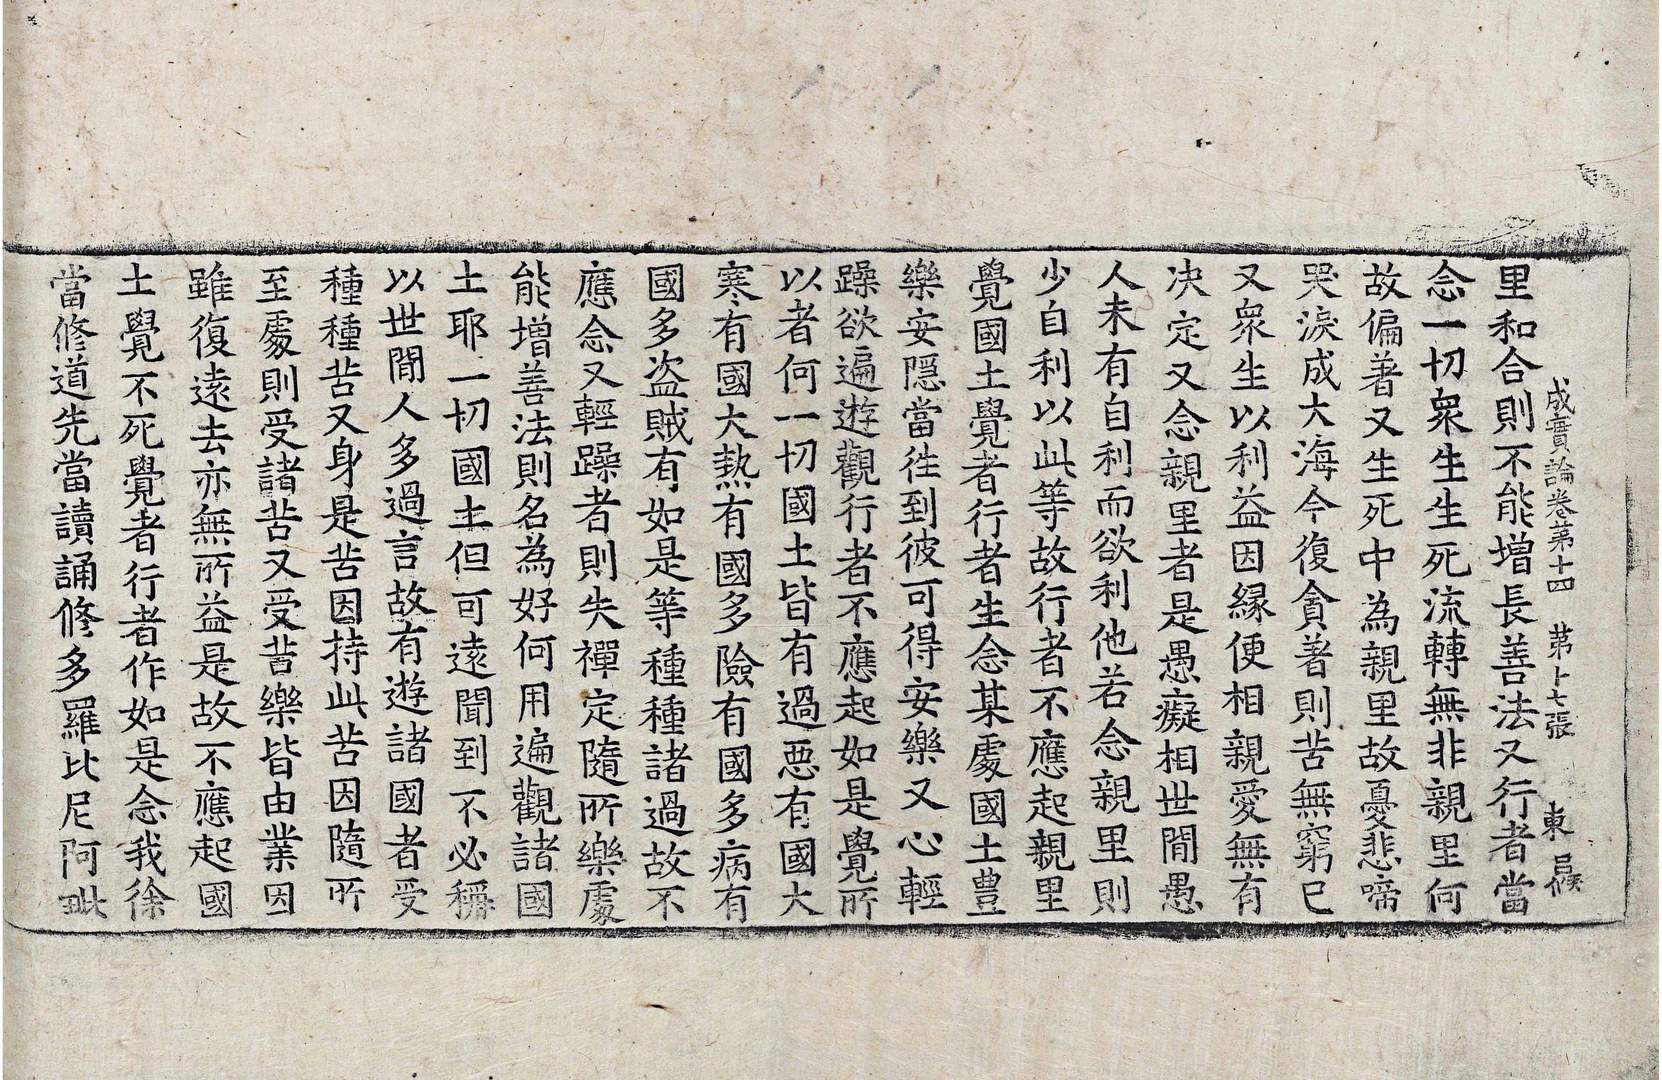 成實論卷第十四 第十七張 東
里和合則不能增長善法又行者當
念一切衆生生死流轉無非親里何
故偏著又生死中為親里故憂悲啼
哭淚成大海今復貪著則苦無窮已
又衆生以利益因緣便相親愛無有
决定又念親里者是愚癡相世間愚
人未有自利而欲利他若念親里則
少自利以此等故行者不應起親里
覺國土覺者行者生念某處國土豊
樂安隱當往到彼可得安樂又心輕
躁欲遍遊觀行者不應起如是覺所
以者何一切國土皆有過惡有國大
寒有國大熱有國多險有國多病有
國多盜賊有如是等種種諸過故不
應念又輕躁者則失禪定隨所樂處
能增善法則名為好何用遍觀諸國
土耶一切國土但可遠聞到不必稱
以世間人多過言故有遊諸國者受
種種苦又身是苦因持此苦因隨所
至處則受諸苦又受苦樂皆由業因
雖復遠去亦無所益是故不應起國
土覺不死覺者行者作如是念我徐
當修道先當讀誦修多羅比尼阿毗